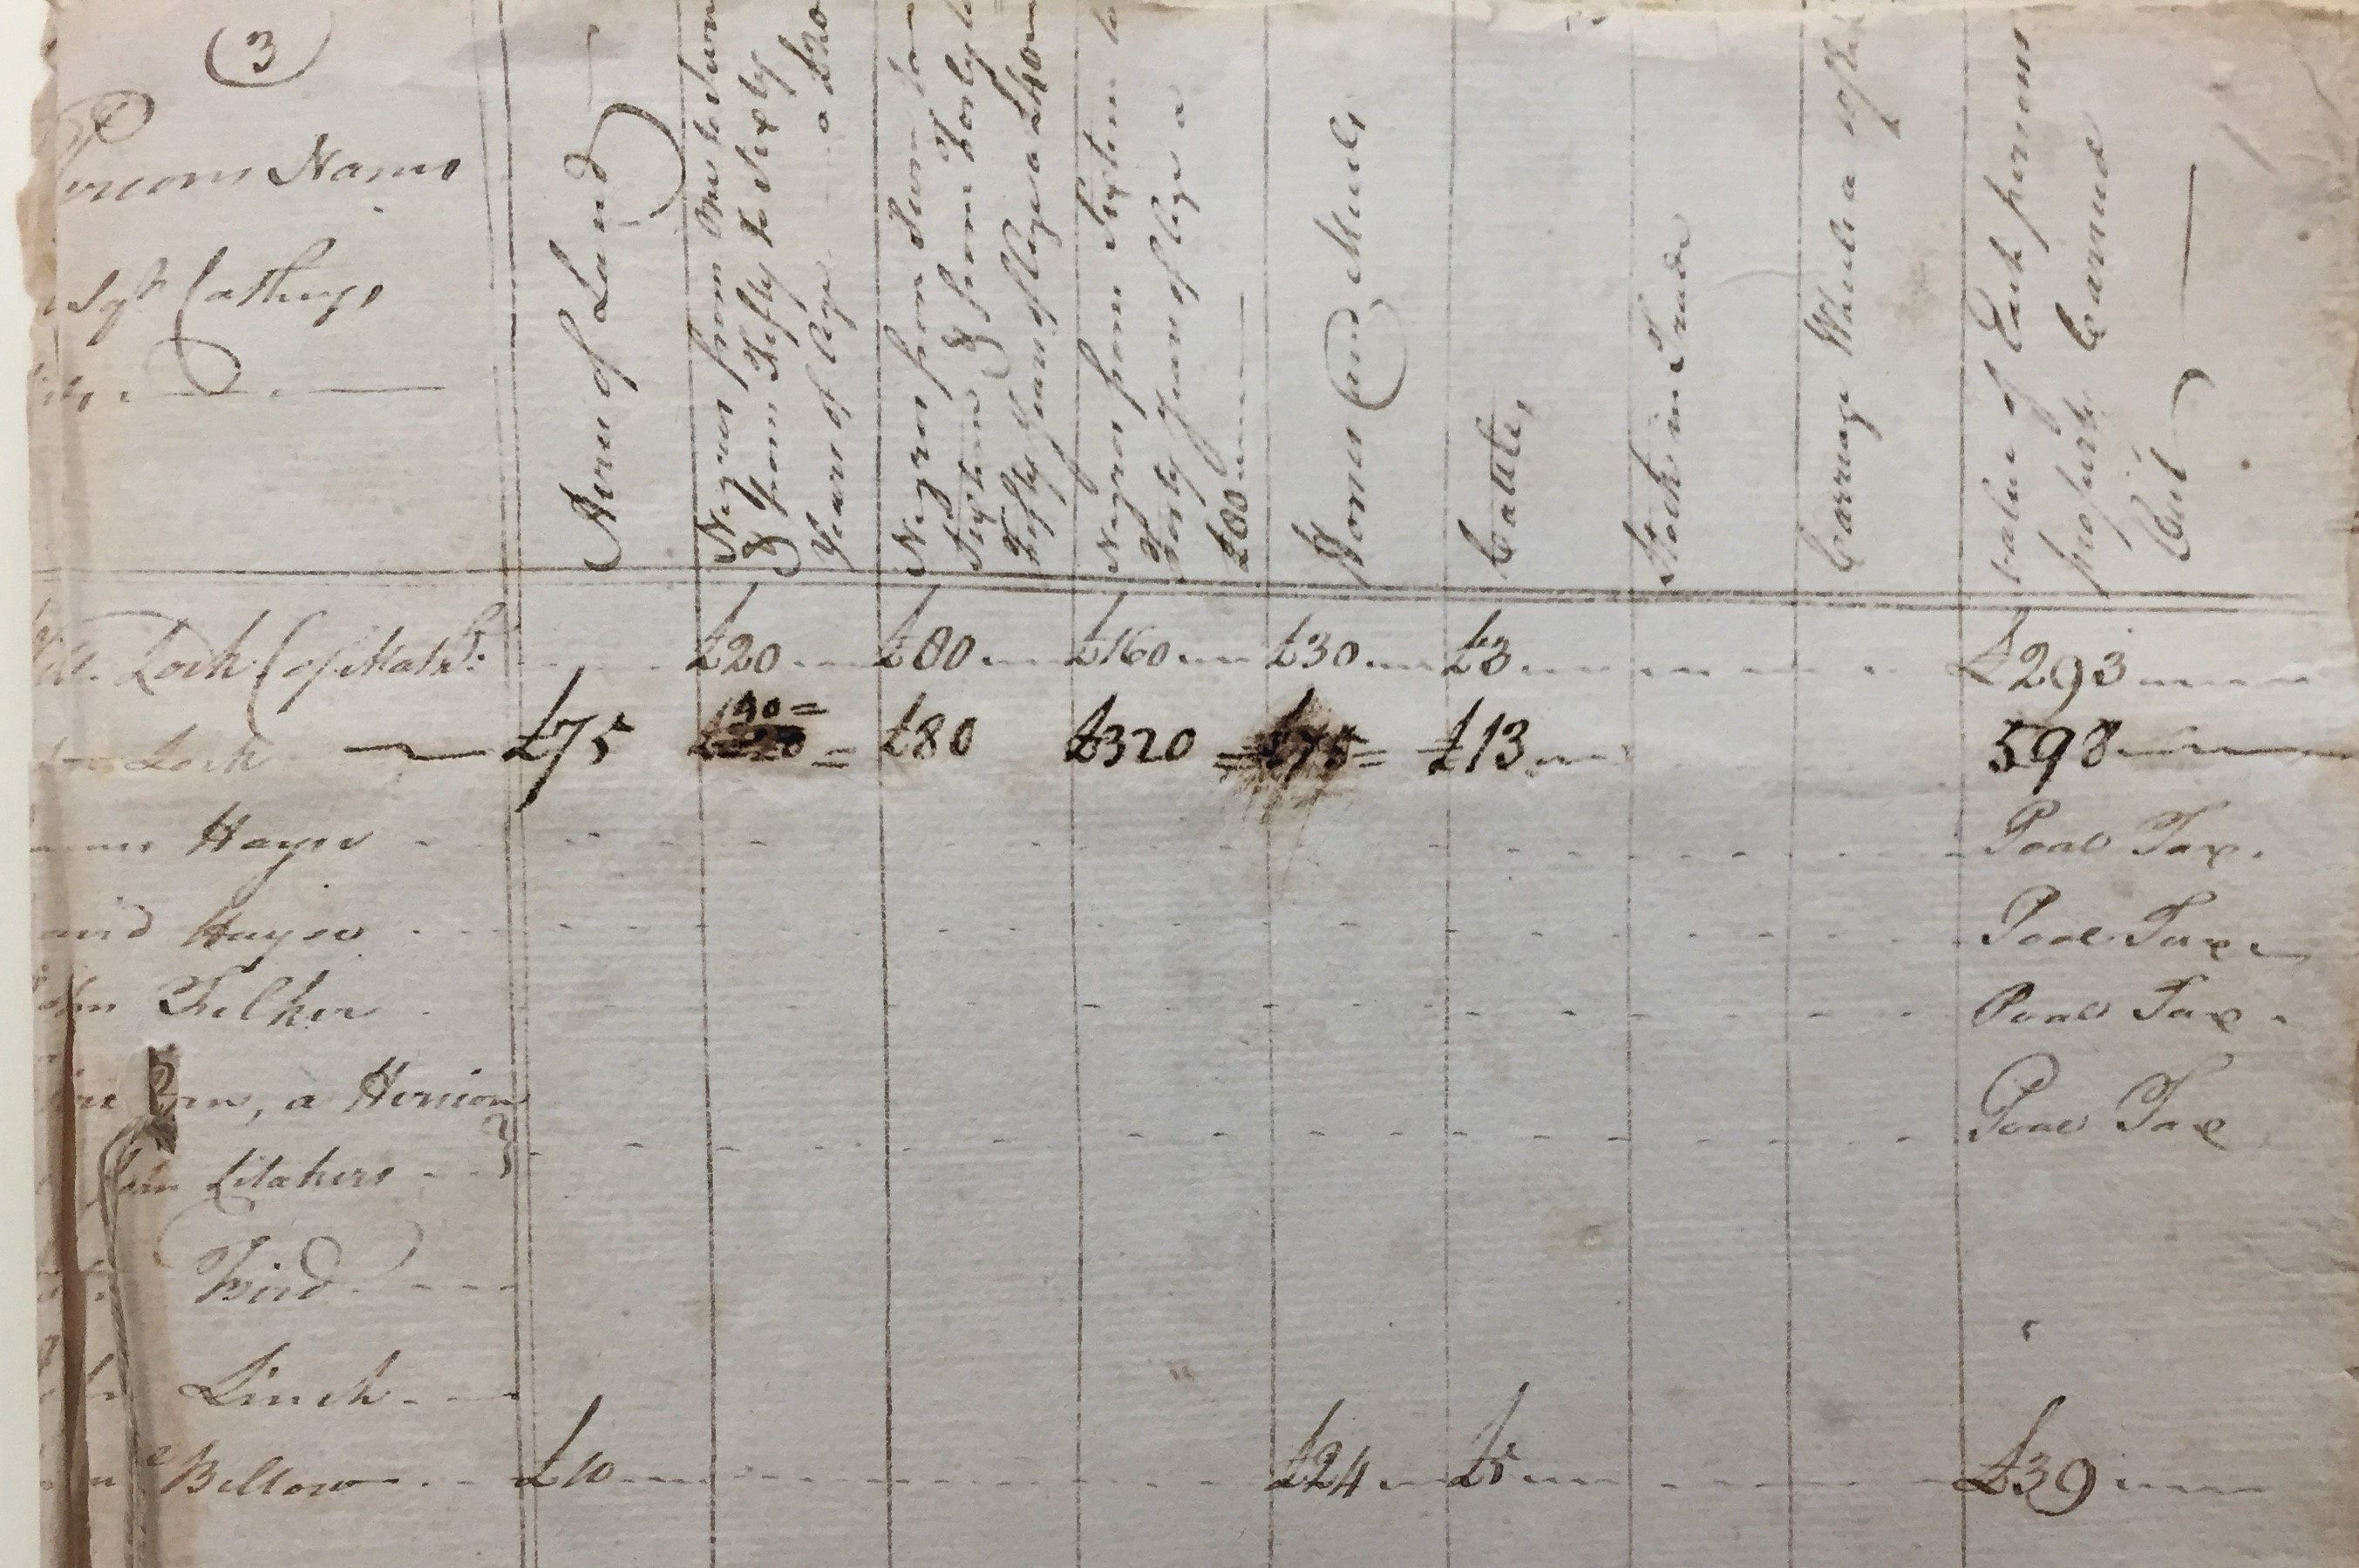 (3)
Persons Names
Acres of Land
Negroes from One to Seven
& from Fifty to Sixty
Years of Age a £20
Negroes from Seven to
Sixteen & from Forty to
Fifty Years of Age a £40
Negroes from Sixteen to
Forty Years of Age a
£80
Horses and Muels
Cattle,
Stock in Trade
Carriage Wheels a
value of Each persons
property Carried
Out
Lock £20 £80 £160 £30 £3 £293
Lock £75 40 £80 £320 £75 £13 598
Hayse Poal Tax.
Hayse Poal Tax
Felker Poal Tax.
a Hession Poal Tax
Litakers
Bird
Linch
Bellow £10 £24 £5 £39